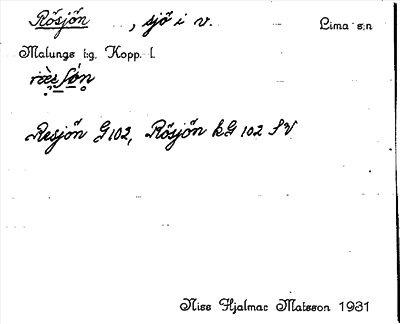 Rösjön , sjö i v. Lima s:n
Malungs t:g. Kopp. l.
Resjön G 102, Rösjön kG 102 SV
Niss Hjalmar Matsson 1931